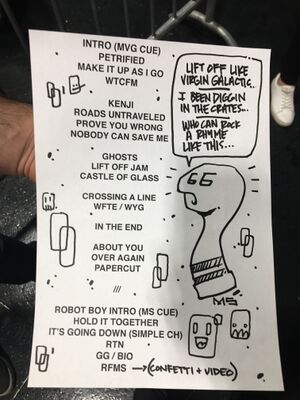 INTRO (MVG CUE)
PETRIFIED
MAKE IT UP AS I GO
WTCFM
KENJI
ROADS UNTRAVELED
PROVE YOU WRONG
NOBODY CAN SAVE ME
GHOSTS
LIFT OFF JAM
CASTLE OF GLASS
CROSSING A LINE
WFTE / WYG
IN THE END
ABOUT YOU
OVER AGAIN
PAPERCUT
///
ROBOT BOY INTRO (MS CUE)
HOLD IT TOGETHER
IT'S GOING DOWN (SIMPLE CH)
RTN
GG / BIO
RFMS → (CONFETTI + VIDEO)
LIFT OFF LIKE
VIRGIN GALACTIC..
I BEEN DIGGIN
IN THE CRATES...
WHO CAN ROCK
A RHYME
LIKE THIS...
MS